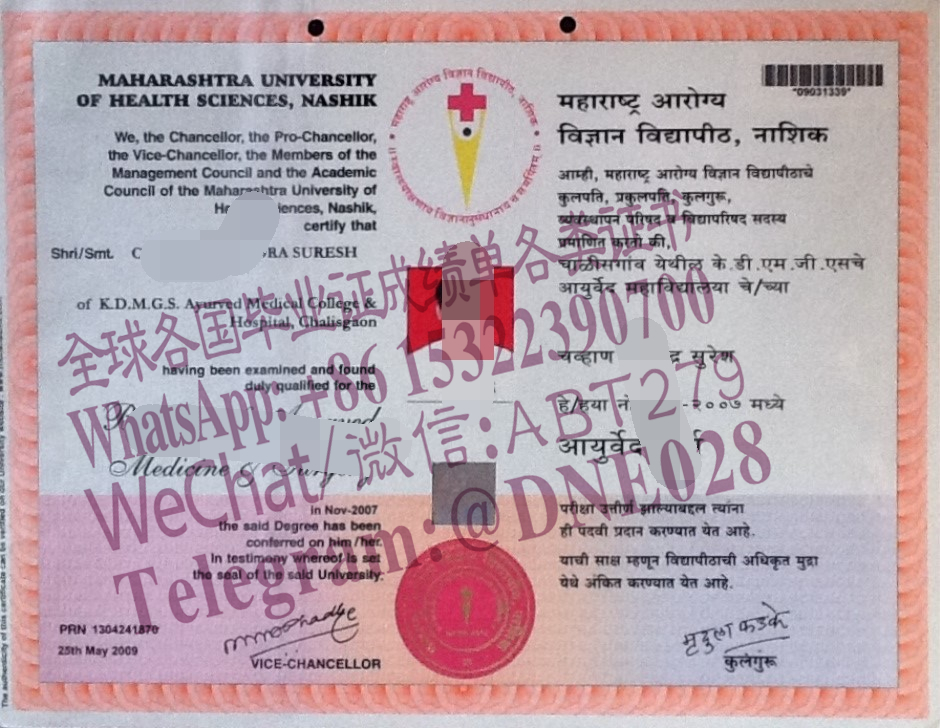 MAHARASHTRA UNIVERSITY
OF HEALTH SCIENCES, NASHIK
We, the Chancellor, the Pro-Chancellor,
the Vice-Chancellor, the Members of the
Management Council and the Academic
Council of the Maharashtra University of
iences, Nashik,
certify that
Shri/Smt. C RA SURESH
of K.D.M.G.S. Ayurved Medical College &
Hospital, Chalisgaon
having been examined and found
duly qualified for the
Medicine &
in Nov-2007
the said Degree has been
conferred on him/her.
In testimony whereof is set
the seal of the said University.
PRN 1304241870
25th May 2009
VICE-CHANCELLOR
महाराष्ट्र आरोग्य विज्ञान विद्यापीठ, नाशिक
*09031339*
महाराष्ट्र आरोग्य
विज्ञान विद्यापीठ, नाशिक
आम्ही, महाराष्ट्र आरोग्य विज्ञान विद्यापीठाचे
कुलपति, प्रकुलपति, कुलगुरू,
व्यवस्थापन परिषद व विद्यापरिषद सदस्य
प्रमाणित करतो की,
चाळीसगांव येथील के.डी.एम.जी.एसचे
आयुर्वेद महाविद्यालया चे/च्या
चव्हाण द्र सुरेश
हे/हया नं -२००७ मध्ये
आयुर्वेद
परीक्षा उत्तीर्ण झाल्याबद्दल त्यांना
ही पदवी प्रदान करण्यात येत आहे.
याची साक्ष म्हणून विद्यापीठाची अधिकृत मुद्रा
येथे अंकित करण्यात येत आहे.
मृदुला फडके
कुलगुरू
全球各国毕业证成绩单各类证书
WhatsApp:+86 13322390700
WeChat/微信:ABT279
Telegram:@DNE028